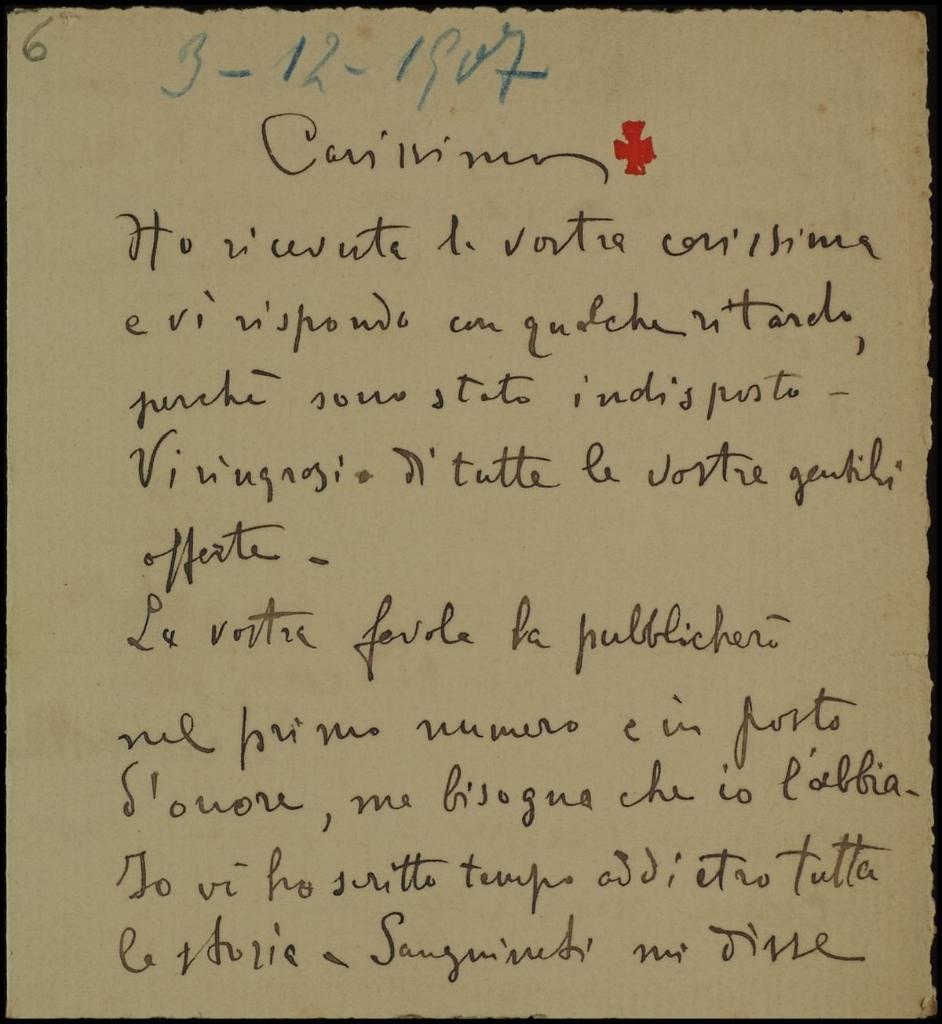 6
3-12-1907
Carissimo
Ho ricevuta la vostra carissima
e vi rispondo con qualche ritardo,
perchè sono stato indisposto -
Vi ringrazio di tutte le vostre gentili
offerte -
La vostra favola la pubblicherò
nel primo numero e in posto
d'onore, ma bisogna che io l'abbia -
Io vi ho scritto tempo addietro tutta
la storia - Sanguineti mi disse